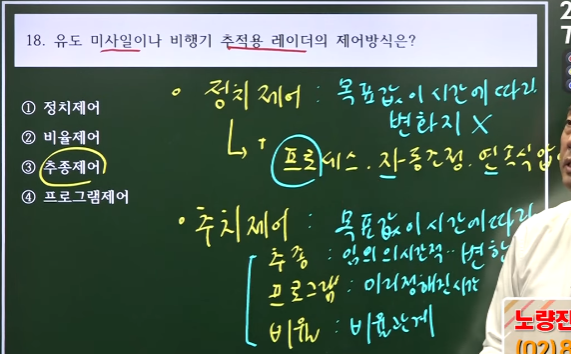 18. 유도 미사일이나 비행기 추적용 레이더의 제어방식은?
① 정치제어
② 비율제어
③ 추종제어
④ 프로그램제어
• 정치제어 : 목표값이 시간에 따라
변화지 X
프로세스. 자동조정. 연속식압
• 추치제어 : 목표값이 시간에 따라
추종 : 임의의 시간적 .. 변화
프로그램 : 미리정해진시간
비율 : 비율관계
노량진
(02)8
2
7